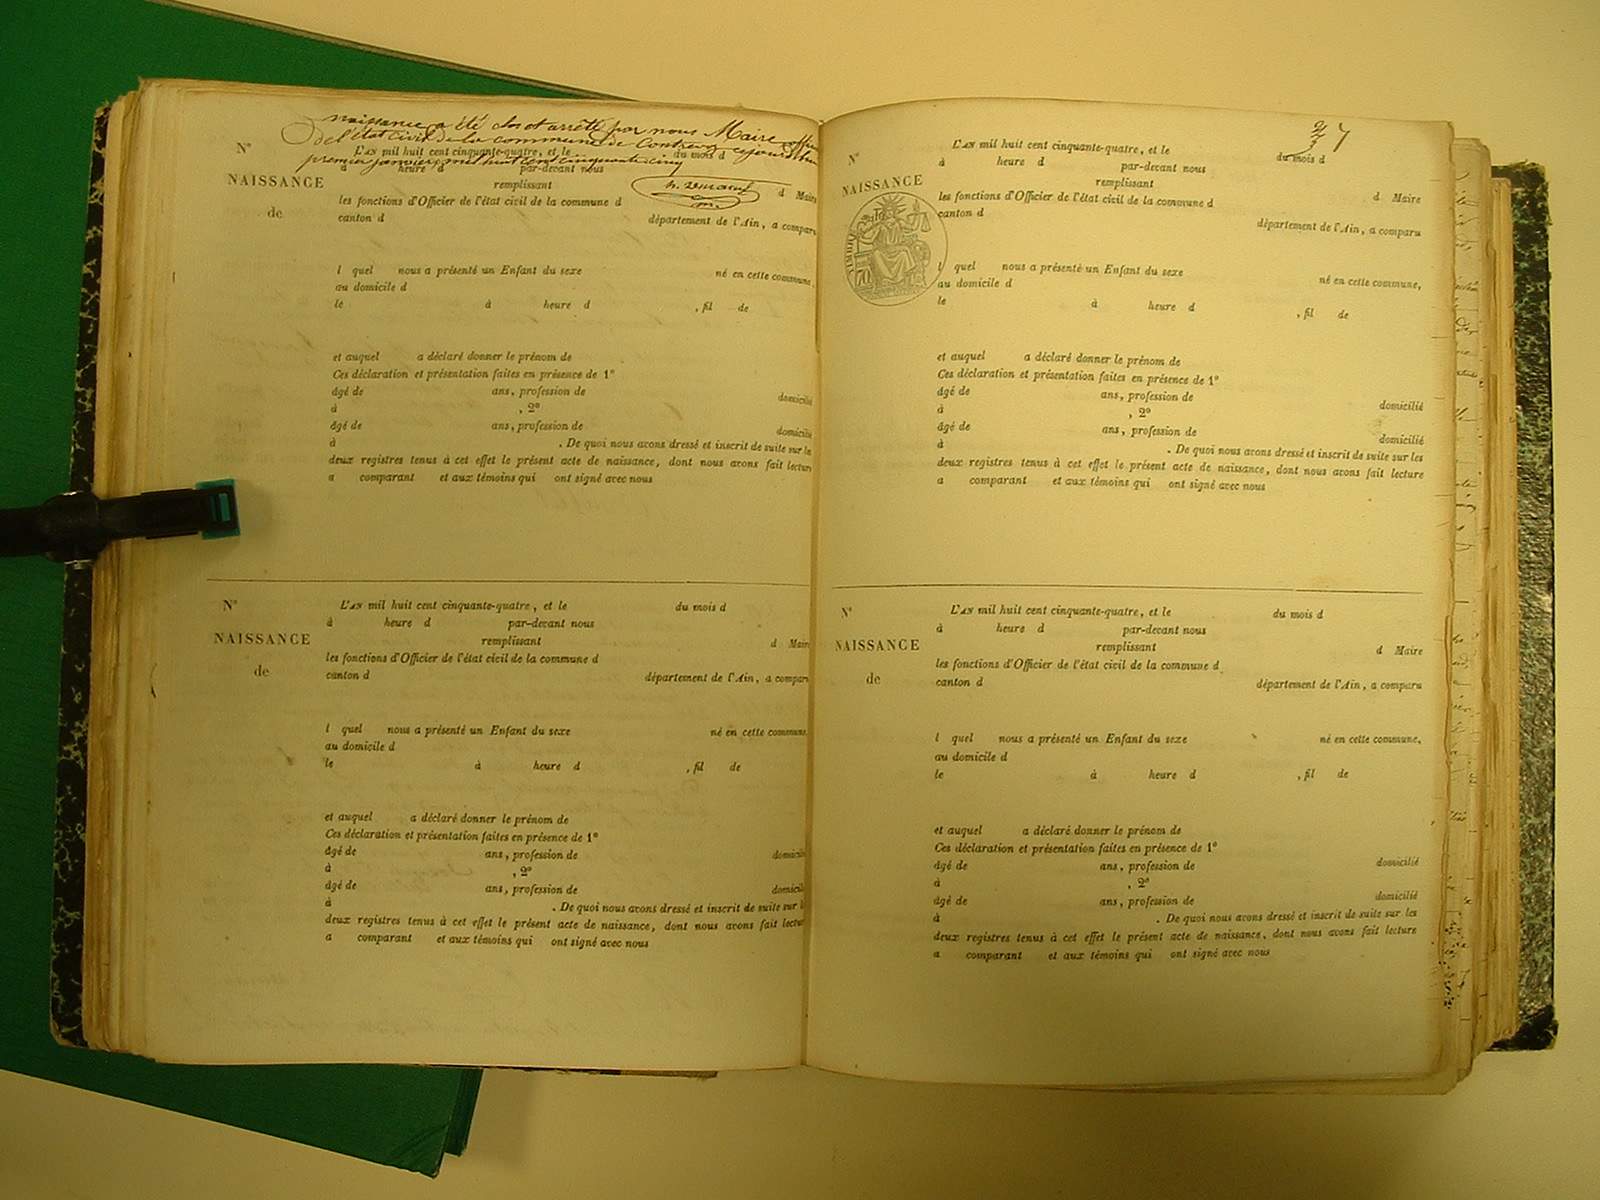 naissance a été clos et arrêté par nous Maire
de l'état civil de la commune de
premier janvier mil huit cent cinquante cinq
N°
L'AN mil huit cent cinquante-quatre, et le du mois d
à heure d par-devant nous
NAISSANCE
remplissant d Maire
les fonctions d'Officier de l'état civil de la commune d
de
canton d département de l'Ain, a comparu
l quel nous a présenté un Enfant du sexe né en cette commune,
au domicile d
le à heure d , fil de
et auquel a déclaré donner le prénom de
Ces déclaration et présentation faites en présence de 1°
âgé de ans, profession de domicilié
à , 2°
âgé de ans, profession de domicilié
à . De quoi nous avons dressé et inscrit de suite sur le
deux registres tenus à cet effet le présent acte de naissance, dont nous avons fait lecture
a comparant et aux témoins qui ont signé avec nous
N°
L'AN mil huit cent cinquante-quatre, et le du mois d
à heure d par-devant nous
NAISSANCE
remplissant d Maire
les fonctions d'Officier de l'état civil de la commune d
de
canton d département de l'Ain, a compar
l quel nous a présenté un Enfant du sexe né en cette commune,
au domicile d
le à heure d , fil de
et auquel a déclaré donner le prénom de
Ces déclaration et présentation faites en présence de 1°
âgé de ans, profession de domicili
à , 2°
âgé de ans, profession de domicil
à . De quoi nous avons dressé et inscrit de suite sur l
deux registres tenus à cet effet le présent acte de naissance, dont nous avons fait lectur
a comparant et aux témoins qui ont signé avec nous
N°
L'AN mil huit cent cinquante-quatre, et le du mois d
à heure d par-devant nous
NAISSANCE
remplissant d Maire
les fonctions d'Officier de l'état civil de la commune d
canton d département de l'Ain, a comparu
TIMBRE
l quel nous a présenté un Enfant du sexe né en cette commune,
au domicile d
le à heure d , fil de
et auquel a déclaré donner le prénom de
Ces déclaration et présentation faites en présence de 1°
âgé de ans, profession de domicilié
à , 2°
âgé de ans, profession de domicilié
à . De quoi nous avons dressé et inscrit de suite sur les
deux registres tenus à cet effet le présent acte de naissance, dont nous avons fait lecture
a comparant et aux témoins qui ont signé avec nous
N°
L'AN mil huit cent cinquante-quatre, et le du mois d
à heure d par-devant nous
NAISSANCE
remplissant d Maire
les fonctions d'Officier de l'état civil de la commune d
de
canton d département de l'Ain, a comparu
l quel nous a présenté un Enfant du sexe né en cette commune,
au domicile d
le à heure d , fil de
et auquel a déclaré donner le prénom de
Ces déclaration et présentation faites en présence de 1°
âgé de ans, profession de domicilié
à , 2°
âgé de ans, profession de domicilié
à . De quoi nous avons dressé et inscrit de suite sur les
deux registres tenus à cet effet le présent acte de naissance, dont nous avons fait lecture
a comparant et aux témoins qui ont signé avec nous